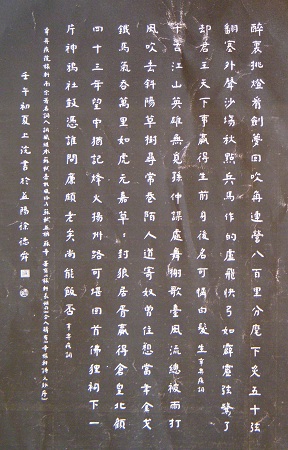 醉裏挑燈看劍夢回吹角連營八百里分麾下炙五十弦
翻塞外聲沙場秋點兵馬作的盧飛快弓如霹靂弦驚了
却君王天下事贏得生前身後名可憐白髮生 辛棄疾詞
千古江山英雄無覓孫仲謀處舞榭歌臺風流總被雨打
風吹去斜陽草樹尋常巷陌人道寄奴曾住想當年金戈
鐵馬氣吞萬里如虎元嘉草々封狼居胥贏得倉皇北顧
四十三年望中猶記烽火揚州路可堪回首佛狸祠下一
片神鴉社鼓憑誰問廉頗老矣尚能飯否 辛棄疾詞
辛棄疾南宋詞人
壬午初夏上浣書於益陽徐德